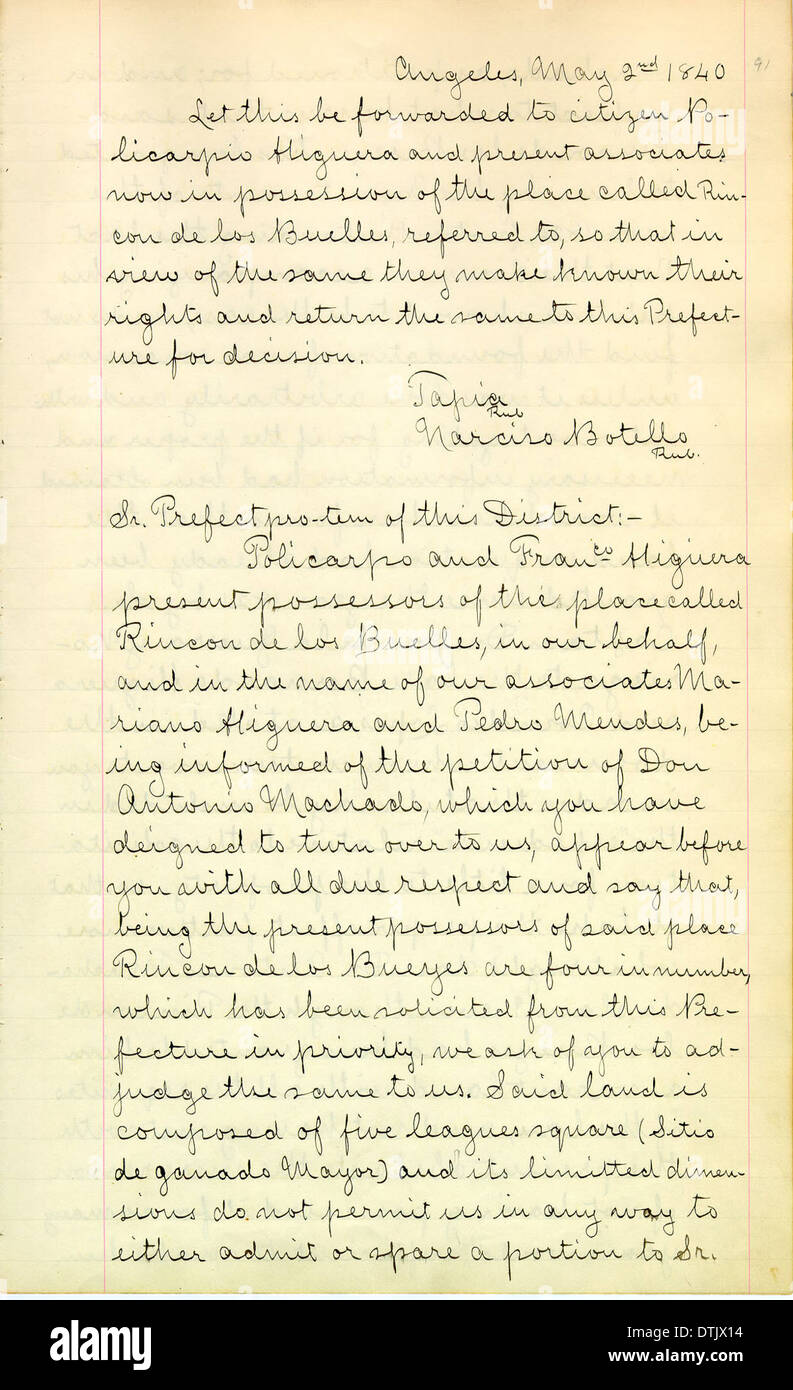 91
Angeles, May 2nd 1840
Let this be forwarded to citizen Po-
licarpio Higuera and present associates
now in possession of the place called Rin-
con de los Buelles, referred to, so that in
view of the same they make known their
rights and return the same to this Prefect-
ure for decision.
Tapia
Rub
Narciso Botello
Rub.
Sr. Prefect pro-tem of this District:-
Policarpo and Franco Higuera
present possessors of the place called
Rincon de los Buelles, in our behalf,
and in the name of our associates Ma-
riano Higuera and Pedro Mendes, be-
ing informed of the petition of Don
Antonio Machado, which you have
deigned to turn over to us, appear before
you with all due respect and say that,
being the present possessors of said place
Rincon de los Bueyes are four in number,
which has been solicited from this Pre-
fecture in priority, we ask of you to ad-
judge the same to us. Said land is
composed of five leagues square (Sitio
de ganado Mayor) and its limitted dimen-
sions do not permit us in any way to
either admit or spare a portion to Sr.
alamy
Image ID: DTJX14
www.alamy.com